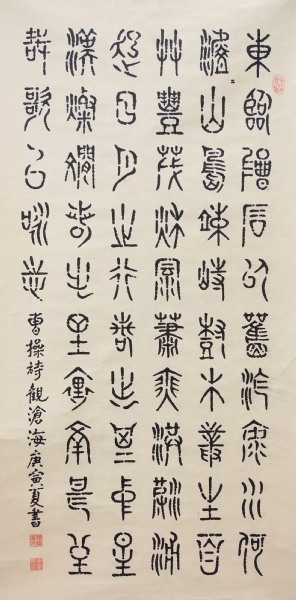 東臨碣石以觀滄海水何
澹〻山島竦峙樹木叢生百
草豐茂秋風蕭瑟洪波涌
起日月之行若出之中星
漢燦爛若出里幸甚至
哉歌以詠志
曹操詩觀滄海庚寅夏書